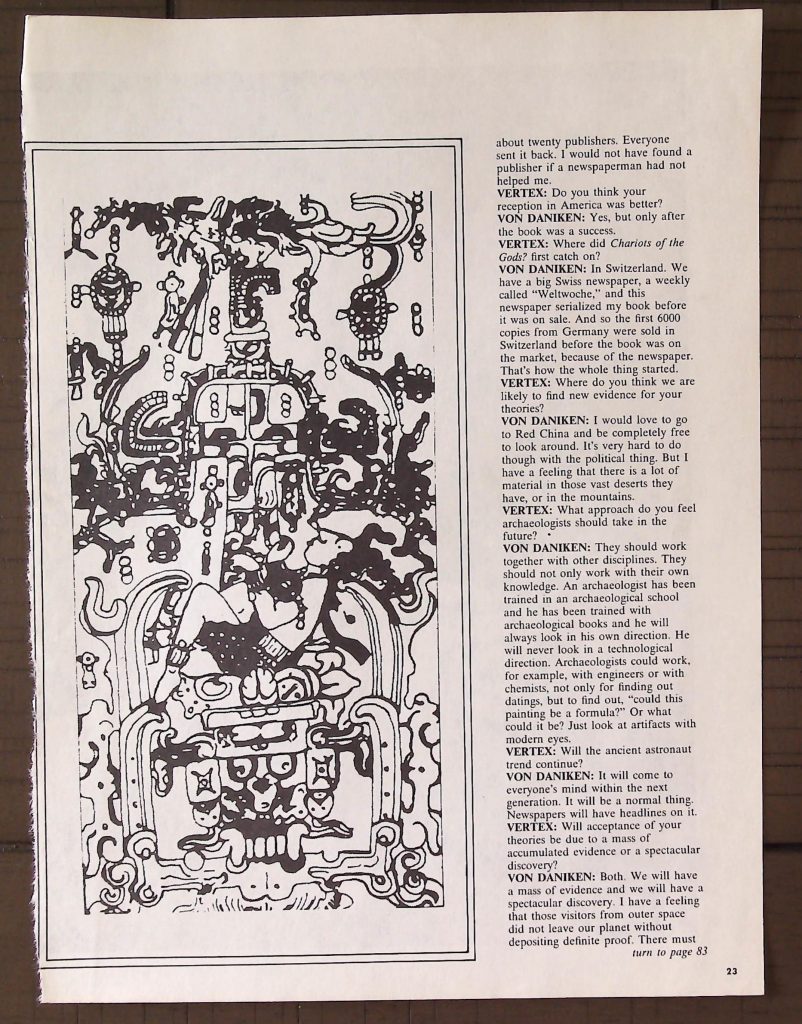 about twenty publishers. Everyone
sent it back. I would not have found a
publisher if a newspaperman had not
helped me.
VERTEX: Do you think your
reception in America was better?
VON DANIKEN: Yes, but only after
the book was a success.
VERTEX: Where did Chariots of the
Gods? first catch on?
VON DANIKEN: In Switzerland. We
have a big Swiss newspaper, a weekly
called “Weltwoche,” and this
newspaper serialized my book before
it was on sale. And so the first 6000
copies from Germany were sold in
Switzerland before the book was on
the market, because of the newspaper.
That's how the whole thing started.
VERTEX: Where do you think we are
likely to find new evidence for your
theories?
VON DANIKEN: I would love to go
to Red China and be completely free
to look around. It's very hard to do
though with the political thing. But I
have a feeling that there is a lot of
material in those vast deserts they
have, or in the mountains.
VERTEX: What approach do you feel
archaeologists should take in the
future?
VON DANIKEN: They should work
together with other disciplines. They
should not only work with their own
knowledge. An archaeologist has been
trained in an archaeological school
and he has been trained with
archaeological books and he will
always look in his own direction. He
will never look in a technological
direction. Archaeologists could work,
for example, with engineers or with
chemists, not only for finding out
datings, but to find out, “could this
painting be a formula?” Or what
could it be? Just look at artifacts with
modern eyes.
VERTEX: Will the ancient astronaut
trend continue?
VON DANIKEN: It will come to
everyone's mind within the next
generation. It will be a normal thing.
Newspapers will have headlines on it.
VERTEX: Will acceptance of your
theories be due to a mass of
accumulated evidence or a spectacular
discovery?
VON DANIKEN: Both. We will have
a mass of evidence and we will have a
spectacular discovery. I have a feeling
that those visitors from outer space
did not leave our planet without
depositing definite proof. There must
turn to page 83
23